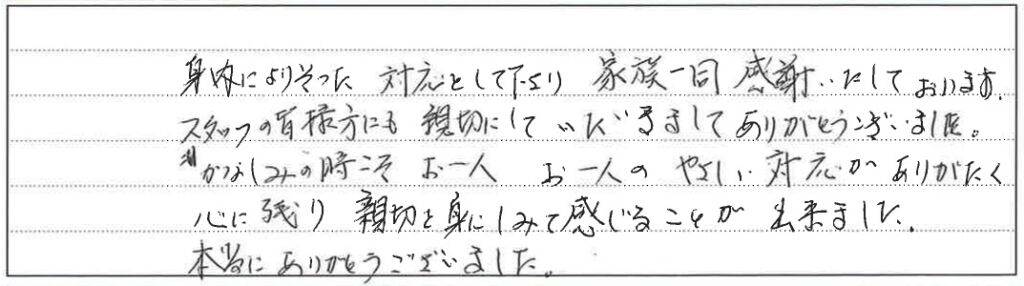 身内によりそった 対応をして下さり 家族一同 感謝いたして おります。
スタッフの皆様方にも 親切にして いただきまして ありがとうございました。
かなしみの時こそ お一人 お一人の やさしい 対応が ありがたく
心に残り 親切を身にしみて感じることが 出来ました。
本当に ありがとうございました。